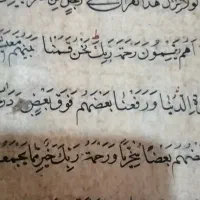 لولا نزل هذا القرآن
أهم يقسمون رحمة ربك نحن قسمنا بينهم معيشتهم
ة الدنيا ورفعنا بعضهم فوق بعض در
ضهم بعضا سخريا ورحمة ربك خير مما يجمعو